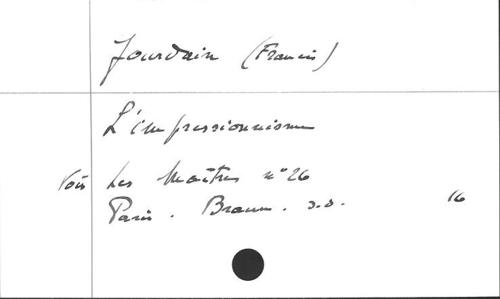 Jourdain (Francis)
L'impressionnisme
Voir Les Maîtres n° 26
Paris. Braun. s.d. 16